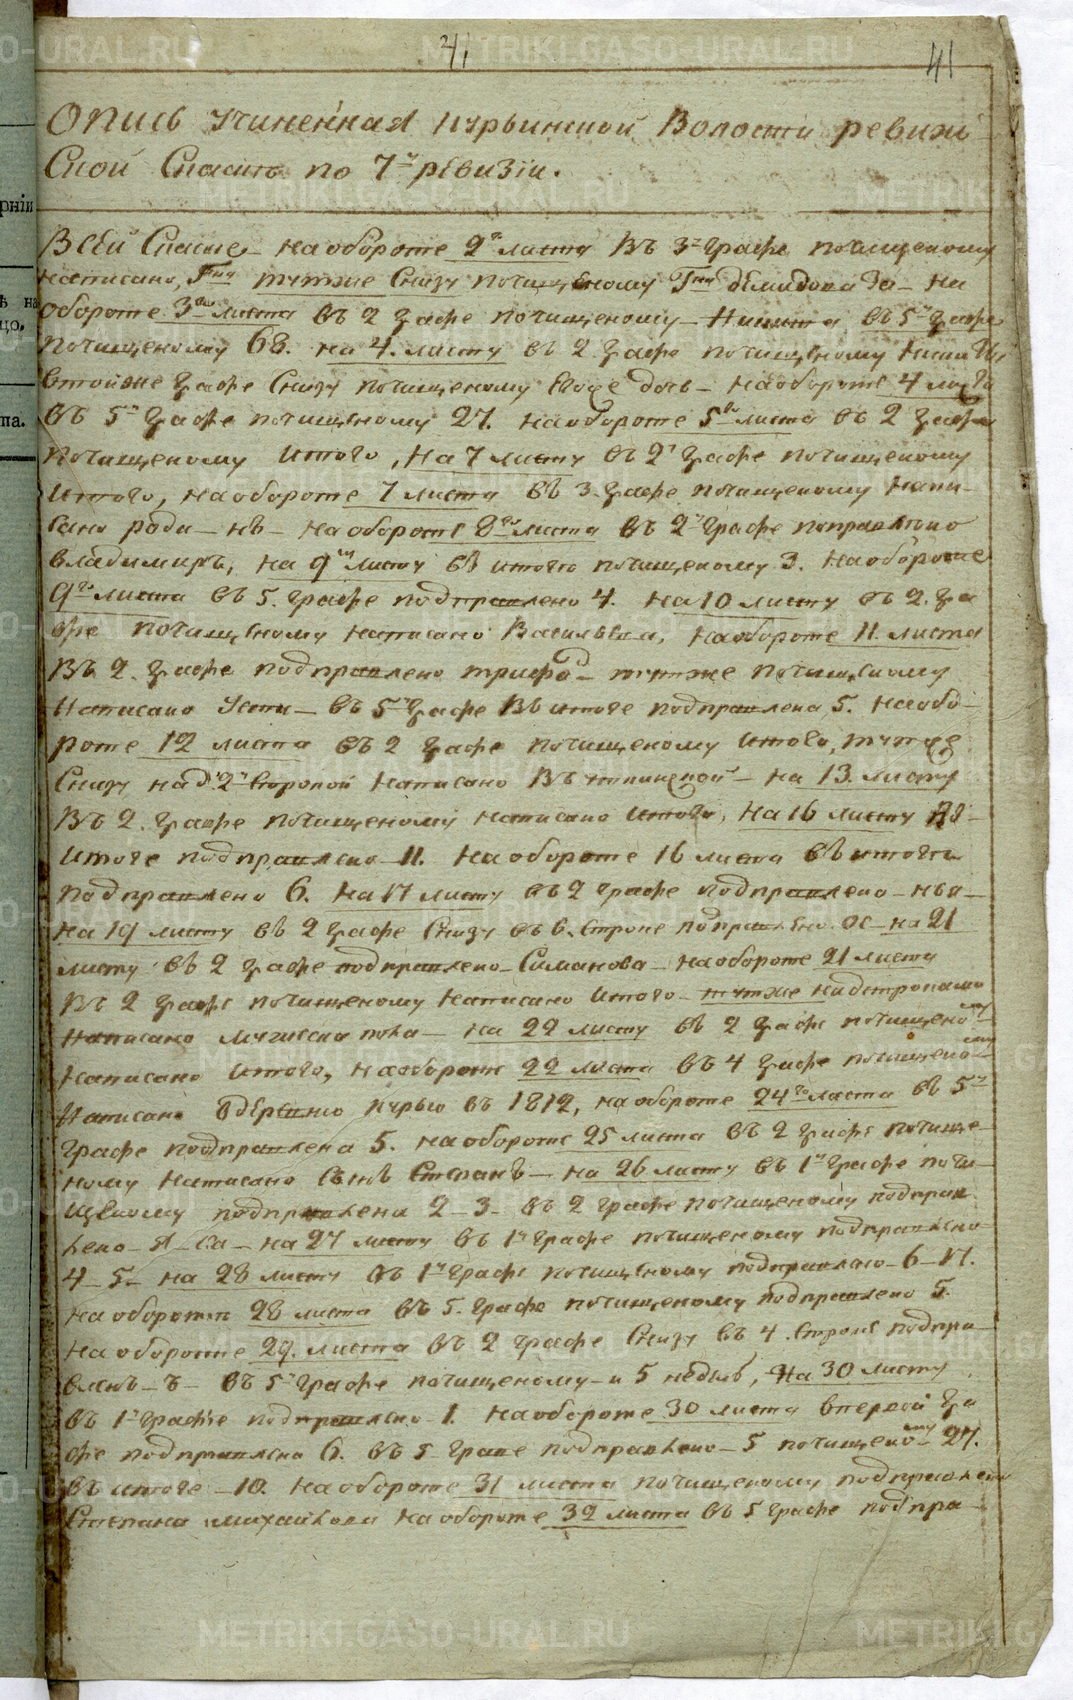 41
41
Опись учиненная курьинской Волости ревизс
кой Сказке по 7й ревизіи.
В сей Сказке на обороте 2го листа въ 3й графе почищеному
написано, тутже Снизу почищеному Демидова За на
обороте 3го листа въ 2 графе почищеному въ 5й графе
почищеному 68. на 4. листу въ 2 графе почищеному
втойже графе Снизу почищеному дочь на обороте 4 листа
въ 5й графе почищеному 27. на обороте 5го листа въ 2 графе
почищеному итого, на 7 листу въ 2й графе почищеному
итого, на обороте 7 листа въ 3. графе почищеному напи
сано роди нъ на обороте 8го листа въ 2й графе поправлено
владимиръ, на 9м листу въ итоге почищеному 3. на обороте
9го листа въ 5. графе подправлено 4. на 10 листу въ 2. гра
фе почищеному написано Васильева, на обороте 11. листа
въ 2. графе подправлено трифо тутже почищеному
написано Усти въ 5й графе въ итоге подправлена 5. на обо
роте 12 листа въ 2 графе почищеному итого, тутже
Снизу над 2й строкой написано на 13. листу
въ 2. графе почищеному написано итого, на 16 листу
итоге подправлено 11. на обороте 16 листа въ итоге
подправлено 6. на 17 листу въ 2 графе подправлено
на 19 листу въ 2 графе Снизу въ 6. строке поправлено ос на 21
листу въ 2 графе подправлено Симанова на обороте 21 листа
въ 2 графе почищеному написано итого тутже надстроками
написано на 22 листу въ 2 графе почищеному
написано итого, на обороте 22 листа въ 4 графе почищеному
написано вдеревню курью въ 1812, на обороте 24го листа въ 5й
графе подправлена 5. на обороте 25 листа въ 2 графе почище
ному написано Сынъ Степанъ на 26 листу въ 1й графе почи
щеному подправлена 2 3 въ 2 графе почищеному подправ
лено я са на 27 листу въ 1й графе почищеному подправлено
4 5 на 28 листу въ 1й графе почищеному подправлено 6 17.
на обороте 28 листа въ 5. графе почищеному подправлено 5.
на обороте 29. листа въ 2 графе Снизу въ 4. строке подпра
вленъ ъ въ 5й графе почищеному и 5 недель, на 30 листу
въ 1й графе подправлено 1. на обороте 30 листа впервой гра
фе подправлена 6. въ 5 граве подправлено 5 почищеному 27.
въ итоге 10. на обороте 31 листа почищеному подправлено
Степана михайлова на обороте 32 листа въ 5 графе подпра